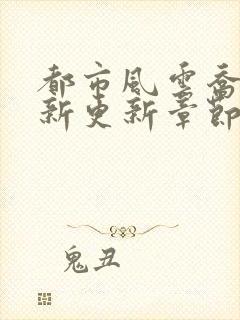 都市風雲喬
新更新章節
鬼丑